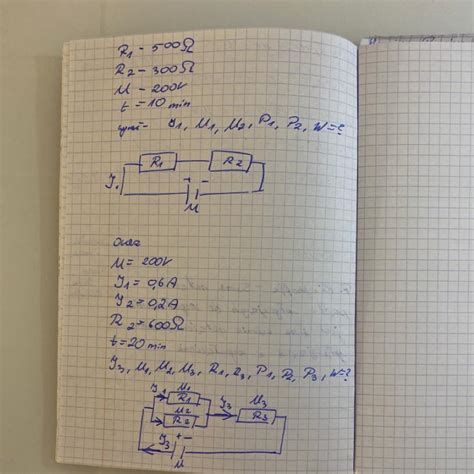 R1 - 500Ω
R2 - 300Ω
U - 200V
t = 10 min
J1, U1, U2, P1, P2, W=?
R1 R2
J.
+ -
U
U = 200V
J1 = 0,6A
J2 = 0,2A
R2 = 600Ω
t = 20 min
J3, U1, U2, U3, R1, R3, P1, P2, P3, W=?
U1
R1
U2
R2
J3
U3
R3
+ -
U